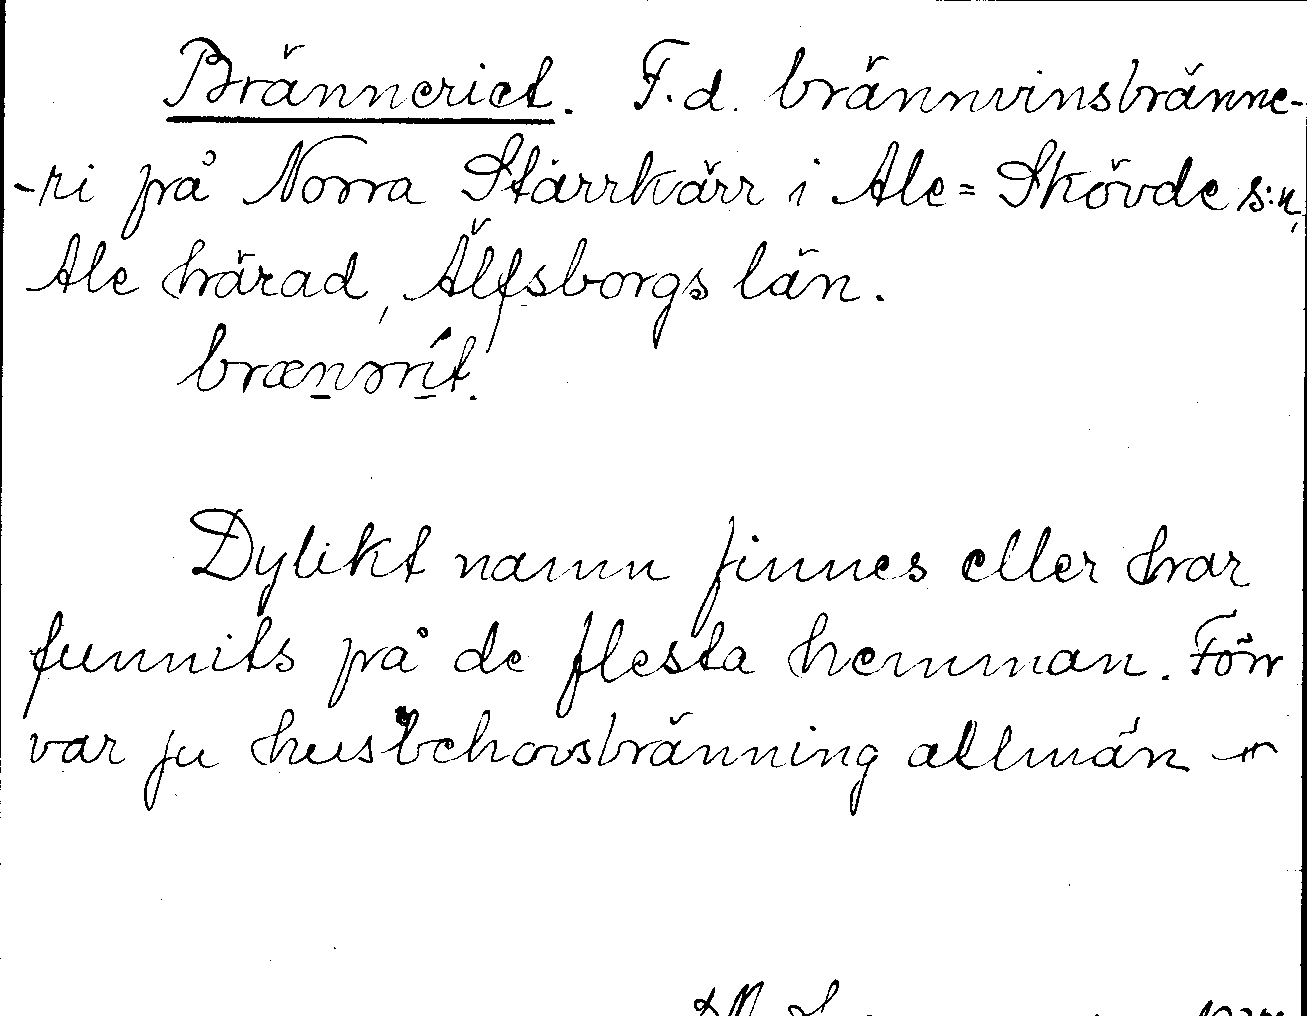 Bränneriet. F.d. brännvinsbränne-
-ri på Norra Stärrkärr i Ale=Skövde s:n,
Ale härad, Älfsborgs län.
brænərít.
Dylikt namn finnes eller har
funnits på de flesta hemman. Förr
var ju husbehovsbränning allmän